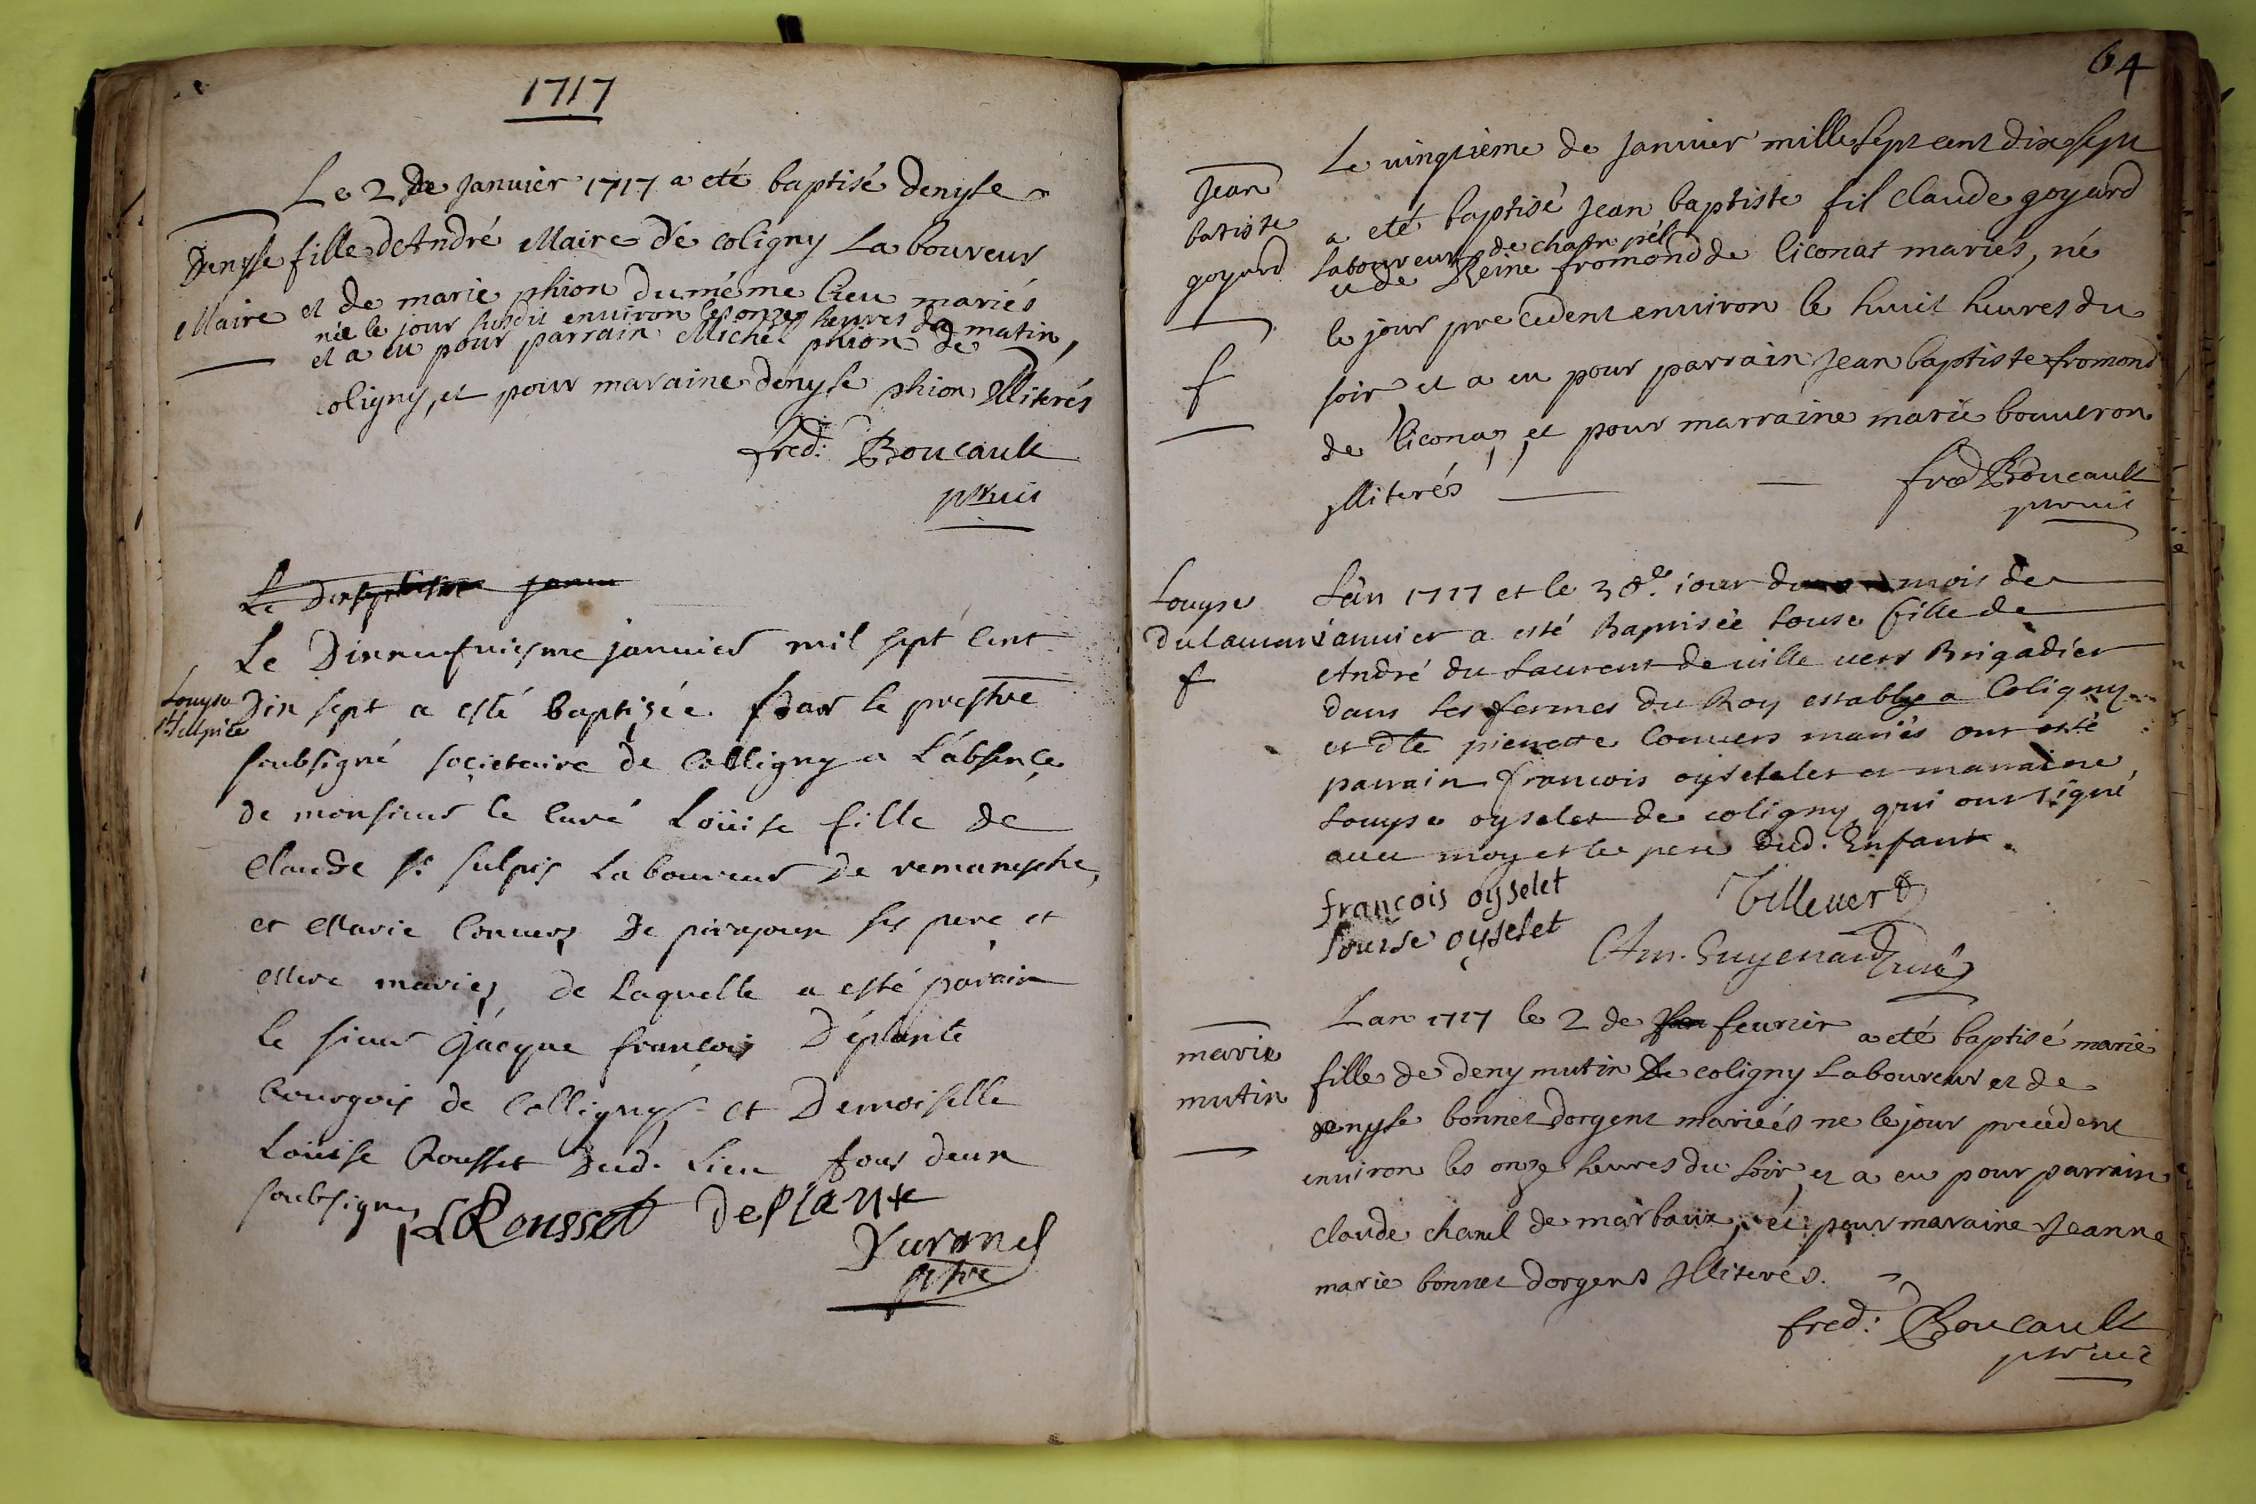 1717
Le 2 de Janvier 1717 a eté baptisé denyse
Denyse fille d'André Maire de coligny Laboureur
Maire et de marie phion du méme lieu mariés
née le jour susdit environ les onze heures du matin,
et a eu pour parrain Michel phion de
coligny, et pour maraine denyse phion Illiterés
fred: Boucault
Le Dixneufviesme janvier mil sept cent
Louyse Dix sept a esté baptisée par le prestre
soubsigné societaire de Colligny a L'absence
de monsieur le Curé Loüise fille de
Claude st sulpis Laboureur de
et Marie Convers De pirajoux ses pere et
Mere mariez de Laquelle a esté parain
le sieur Jácque françois Déplante
bourgois de Colligny et Demoiselle
Loüise Rousset Dud. Lieu tous deux
soubsignez
LRousset Deplante
ptre
64
Le vingtième de Janvier mille sept cent dix sept
Jean
batiste
goyard
a eté baptisé Jean baptiste fil Claude goyard
Laboureur de
et de Reine fromond de liconat mariés, né
le jour precedent environ le huit heures du
f
soir et a eu pour parrain Jean baptiste fromond
de liconaz, et pour marraine marie bouveron
jlliterés
fred Boucault
Louyse
L'an 1717 et le 30e. iour du mois de
Dulauran ianvier a esté Baptisée Louse fille de
f
André du Laurent de ville vert Brigadier
dans les fermes du Roy estably a Coligny
et dlle pierrette Convers mariés ont esté
parrain francois oyselet et marraine
Louyse oyselet de coligny qui ont signé
avec moy et le pere dud. Enfant.
françois oysselet
Villevert
Louise oysselet
Guyenard Curé
Lan 1717 le 2 de fevrier a eté baptisé marie
marie
mutin
fille de deny mutin de coligny Laboureur et de
denyse bonnet dorgent marieés ne le jour precedent
environ les onze heures du soir, et a eu pour parrain
claude charel de marbaux, et pour maraine Jeanne
marie bonnet dorgent Jlliterés.
fred: Boucault